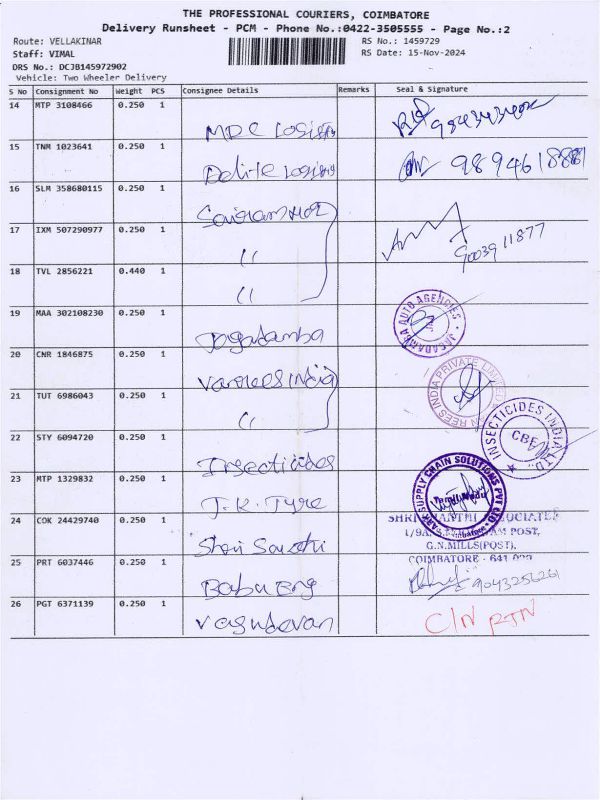 THE PROFESSIONAL COURIERS, COIMBATORE
Delivery Runsheet - PCM - Phone No.:0422-3505555 - Page No.:2
Route: VELLAKINAR RS No.: 1459729
Staff: VIMAL RS Date: 15-Nov-2024
DRS No.: DCJB145972902
Vehicle: Two Wheeler Delivery
S No Consignment No Weight PCS Consignee Details Remarks Seal & Signature
14 MTP 3108466 0.250 1
MDC Logistics
15 TNM 1023641 0.250 1
Delite Logistics 9894618881
16 SLM 358680115 0.250 1
Sairam
17 IXM 507290977 0.250 1
" 9003911877
18 TVL 2856221 0.440 1
"
19 MAA 302108230 0.250 1
Jagadamba
JAGADAMBA AUTO AGENCIES
20 CNR 1846875 0.250 1
VanRees India
VAN REES INDIA PRIVATE LIMITED
21 TUT 6986043 0.250 1
"
INSECTICIDES INDIA LTD.
CBE
22 STY 6094720 0.250 1
Insecticides
SUPPLY CHAIN SOLUTIONS PVT LTD
Tamil Nadu
Coimbatore
23 MTP 1329832 0.250 1
J.K. Tyre
24 COK 24429740 0.250 1
Shri
SHRI ASSOCIATES
POST,
G.N.MILLS(POST),
COIMBATORE - 641 029
25 PRT 6037446 0.250 1
Babu Eng 9043256261
26 PGT 6371139 0.250 1
Vasudevan C/N RTN